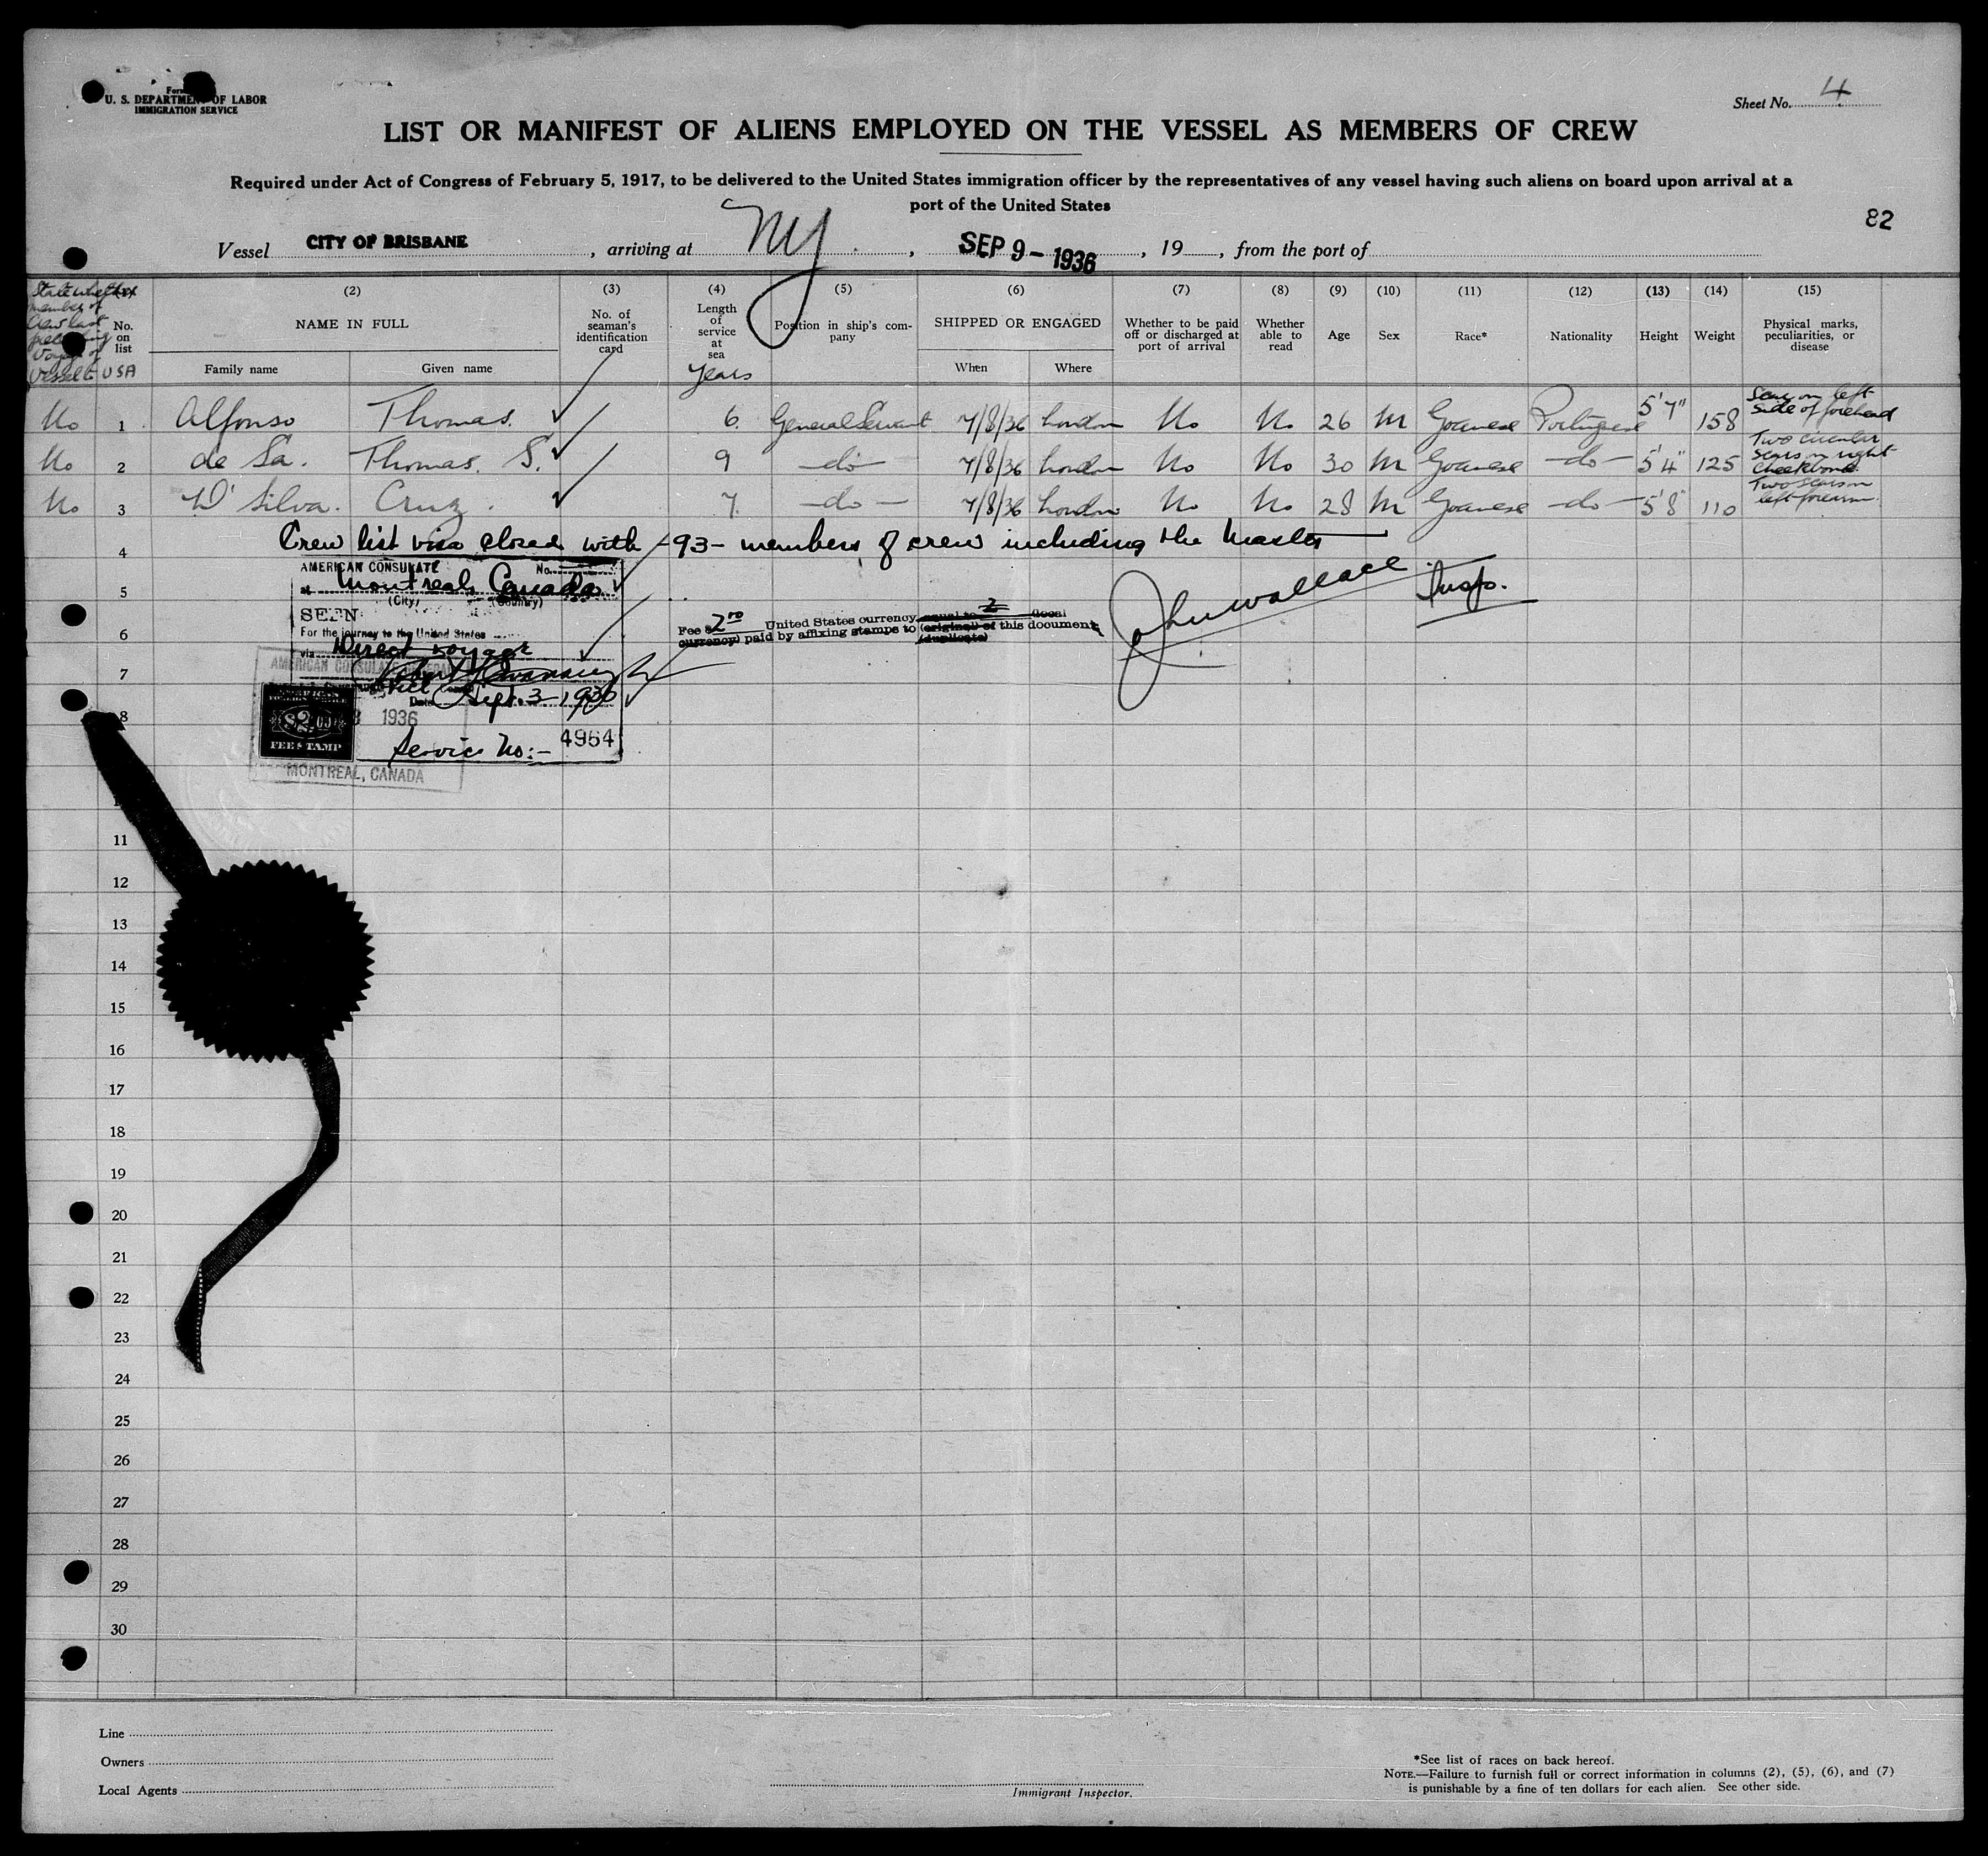 Form
U. S. DEPARTMENT OF LABOR
IMMIGRATION SERVICE
Sheet No. 4
LIST OR MANIFEST OF ALIENS EMPLOYED ON THE VESSEL AS MEMBERS OF CREW
Required under Act of Congress of February 5, 1917, to be delivered to the United States immigration officer by the representatives of any vessel having such aliens on board upon arrival at a
port of the United States
82
Vessel CITY OF BRISBANE, arriving at NY, SEP 9 - 1936, 19, from the port of
State whether member of Crew last preceding Voyage of Vessel to USA
No. on list
(2) NAME IN FULL
Family name Given name
(3) No. of seaman's identification card
(4) Length of service at sea
years
(5) Position in ship's company
(6) SHIPPED OR ENGAGED
When Where
(7) Whether to be paid off or discharged at port of arrival
(8) Whether able to read
(9) Age
(10) Sex
(11) Race*
(12) Nationality
(13) Height
(14) Weight
(15) Physical marks, peculiarities, or disease
No 1 Alfonso Thomas. 6. General Servant 7/8/36 London No No 26 M Goanese Portuguese 5'7" 158 Scar on left side of forehead
No 2 de Sa. Thomas. S. 9 -do- 7/8/36 London No No 30 M Goanese -do- 5'4" 125 Two circular scars on right cheekbone
No 3 D'Silva. Cruz. 7. -do- 7/8/36 London No No 28 M Goanese -do- 5'8" 110 Two scars on left forearm.
4 Crew list visa closed with -93- members of crew including the Master
AMERICAN CONSULATE No.
at Montreal, Canada
(City) (Country)
5
SEEN
For the journey to the United States
6
via Direct voyage
7
AMERICAN CONSULATE GENERAL
Date Sept. 3-1936
8
$2.00
FEE STAMP
1936
Service No:- 4964
MONTREAL, CANADA
Fee $2.00 United States currency equal to 2 (local
currency) paid by affixing stamps to (original) of this document
(duplicate)
John Wallace Insp.
11
12
13
14
15
16
17
18
19
20
21
22
23
24
25
26
27
28
29
30
Line
Owners
Local Agents
Immigrant Inspector.
*See list of races on back hereof.
NOTE.—Failure to furnish full or correct information in columns (2), (5), (6), and (7)
is punishable by a fine of ten dollars for each alien. See other side.